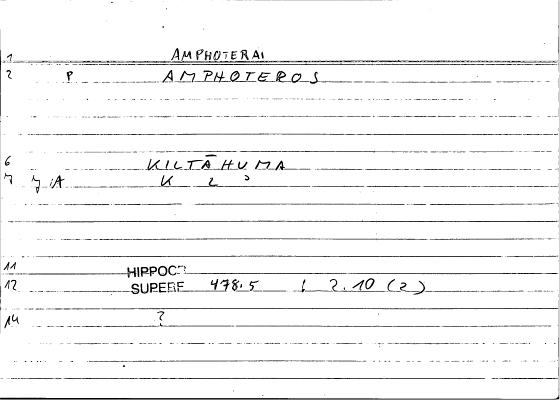 1 AMPHOTERAI
2 P AMPHOTEROS
6 KILTĀHUMA
7 7 A K 2 3
11 HIPPOCR
12 SUPERF 478.5 2.10 (2)
14 ?